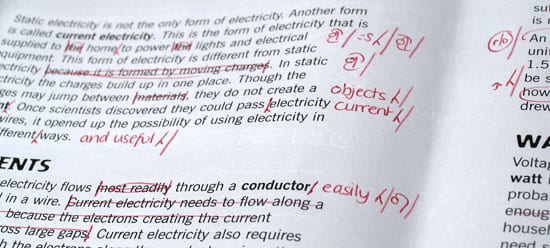 Static electricity is not the only form of electricity. Another form
is called current electricity. This is the form of electricity that is
supplied to the home to power the lights and electrical /=s/
quipment. This form of electricity is different from static
ctricity because it is formed by moving charges. In static
ctricity the charges build up in one place. Though the
ges may jump between materials, they do not create a objects
Once scientists discovered they could pass electricity current
wires, it opened up the possibility of using electricity in
fferent ways. and useful
ENTS
electricity flows most readily through a conductor, easily
d in a wire. Current electricity needs to flow along a
because the electrons creating the current
oss large gaps. Current electricity also requires
h the electrons along the
su
is
r/o An
uni
1.5
be s
how
drew
WA
Volta
watt i
proba
enoug
house
need